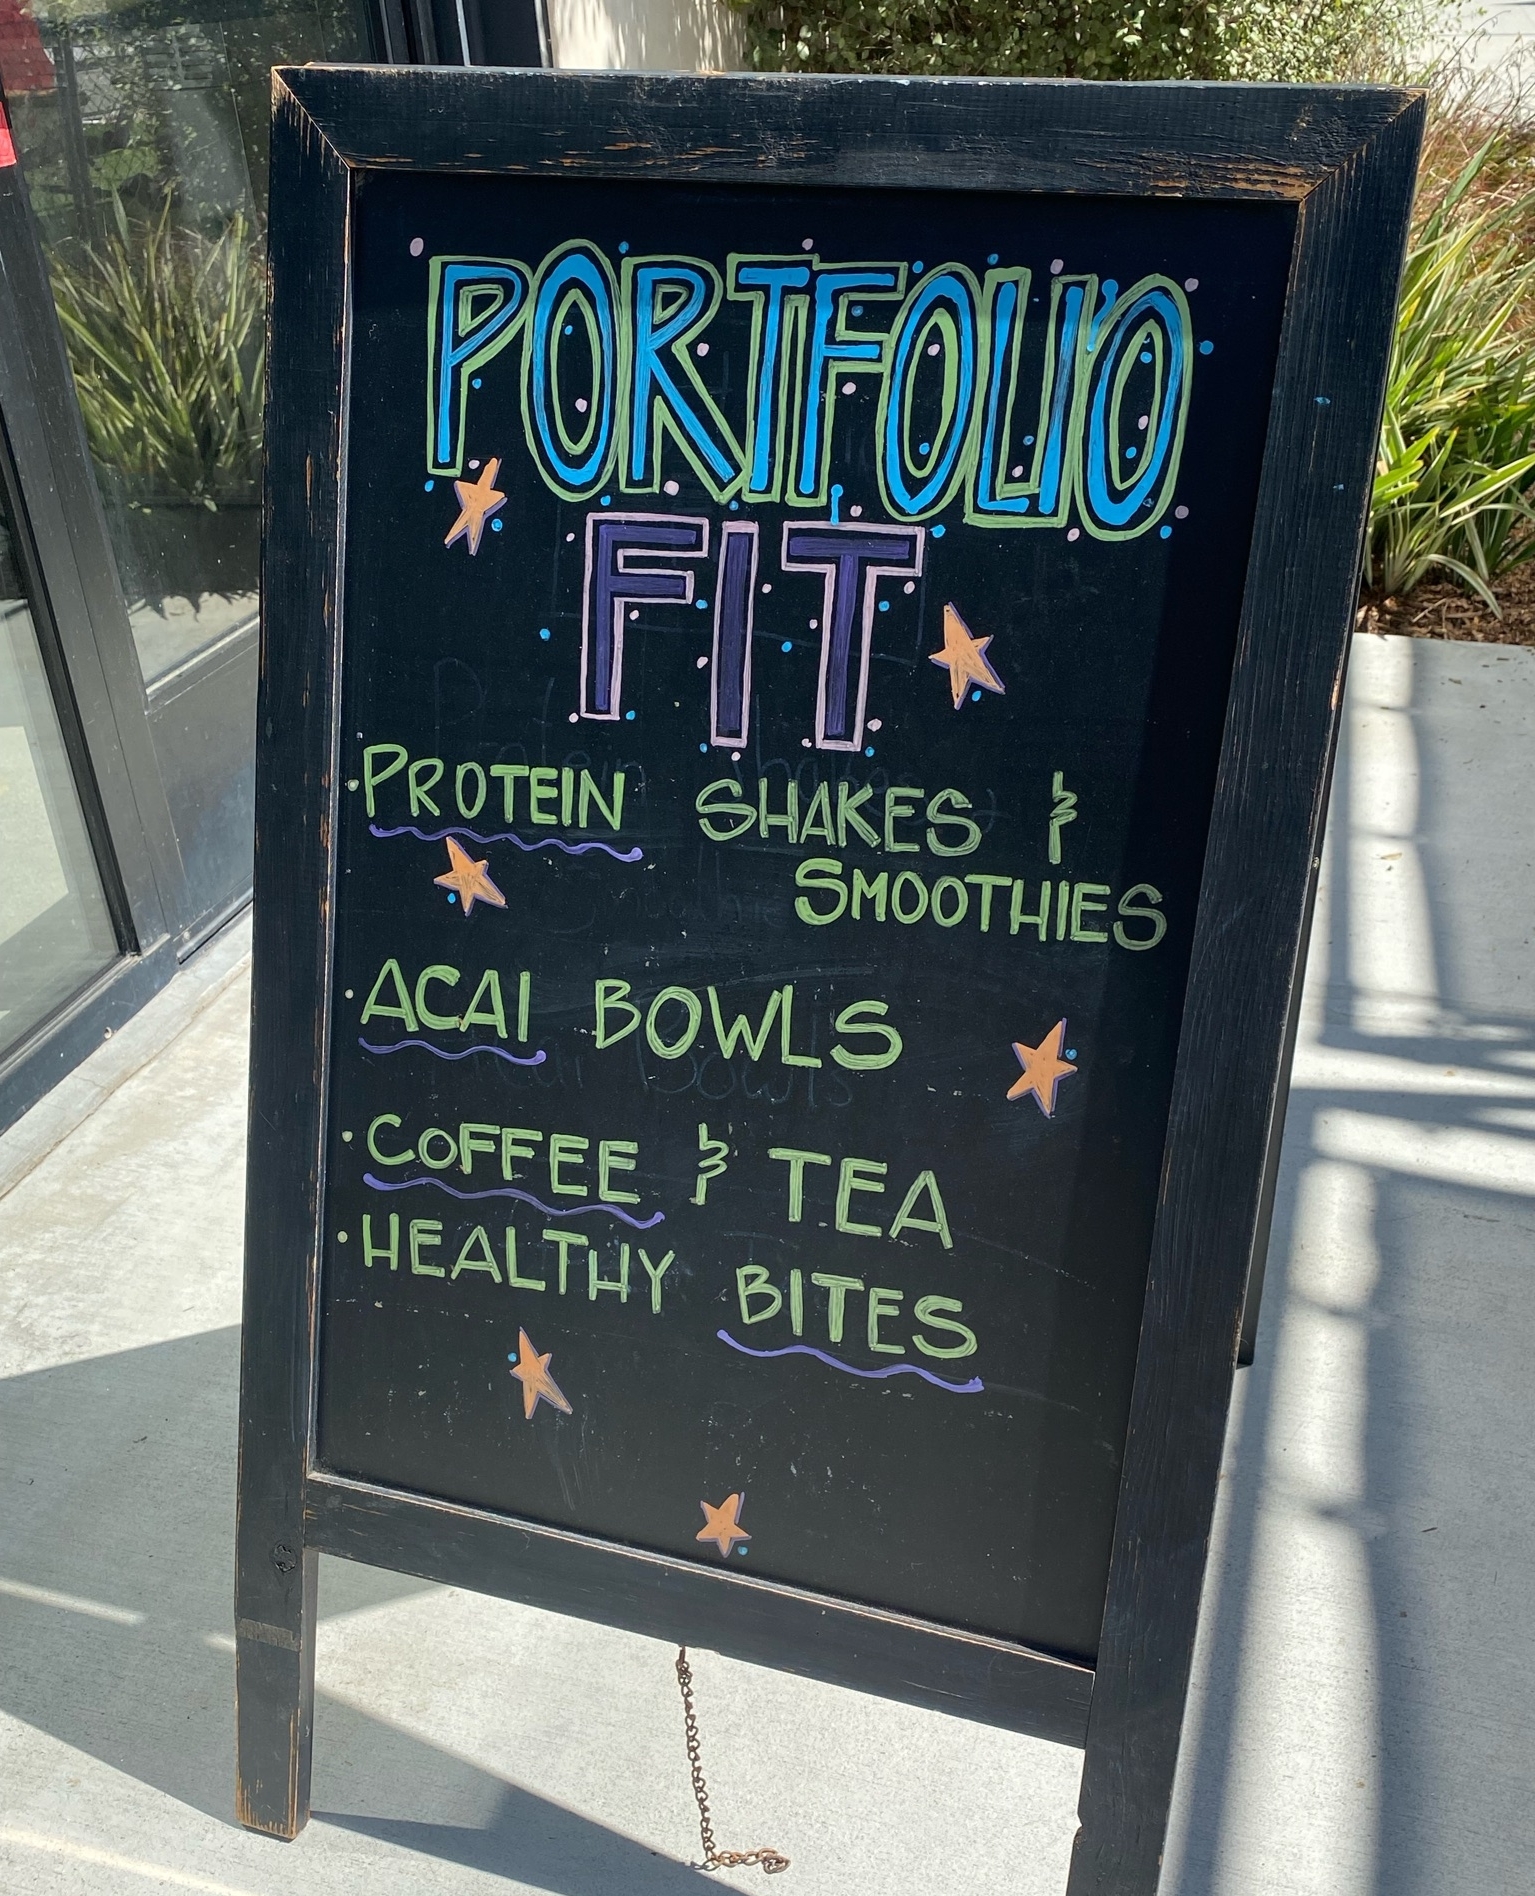 PORTFOLIO
FIT
· PROTEIN SHAKES &
SMOOTHIES
· ACAI BOWLS
· COFFEE & TEA
· HEALTHY BITES